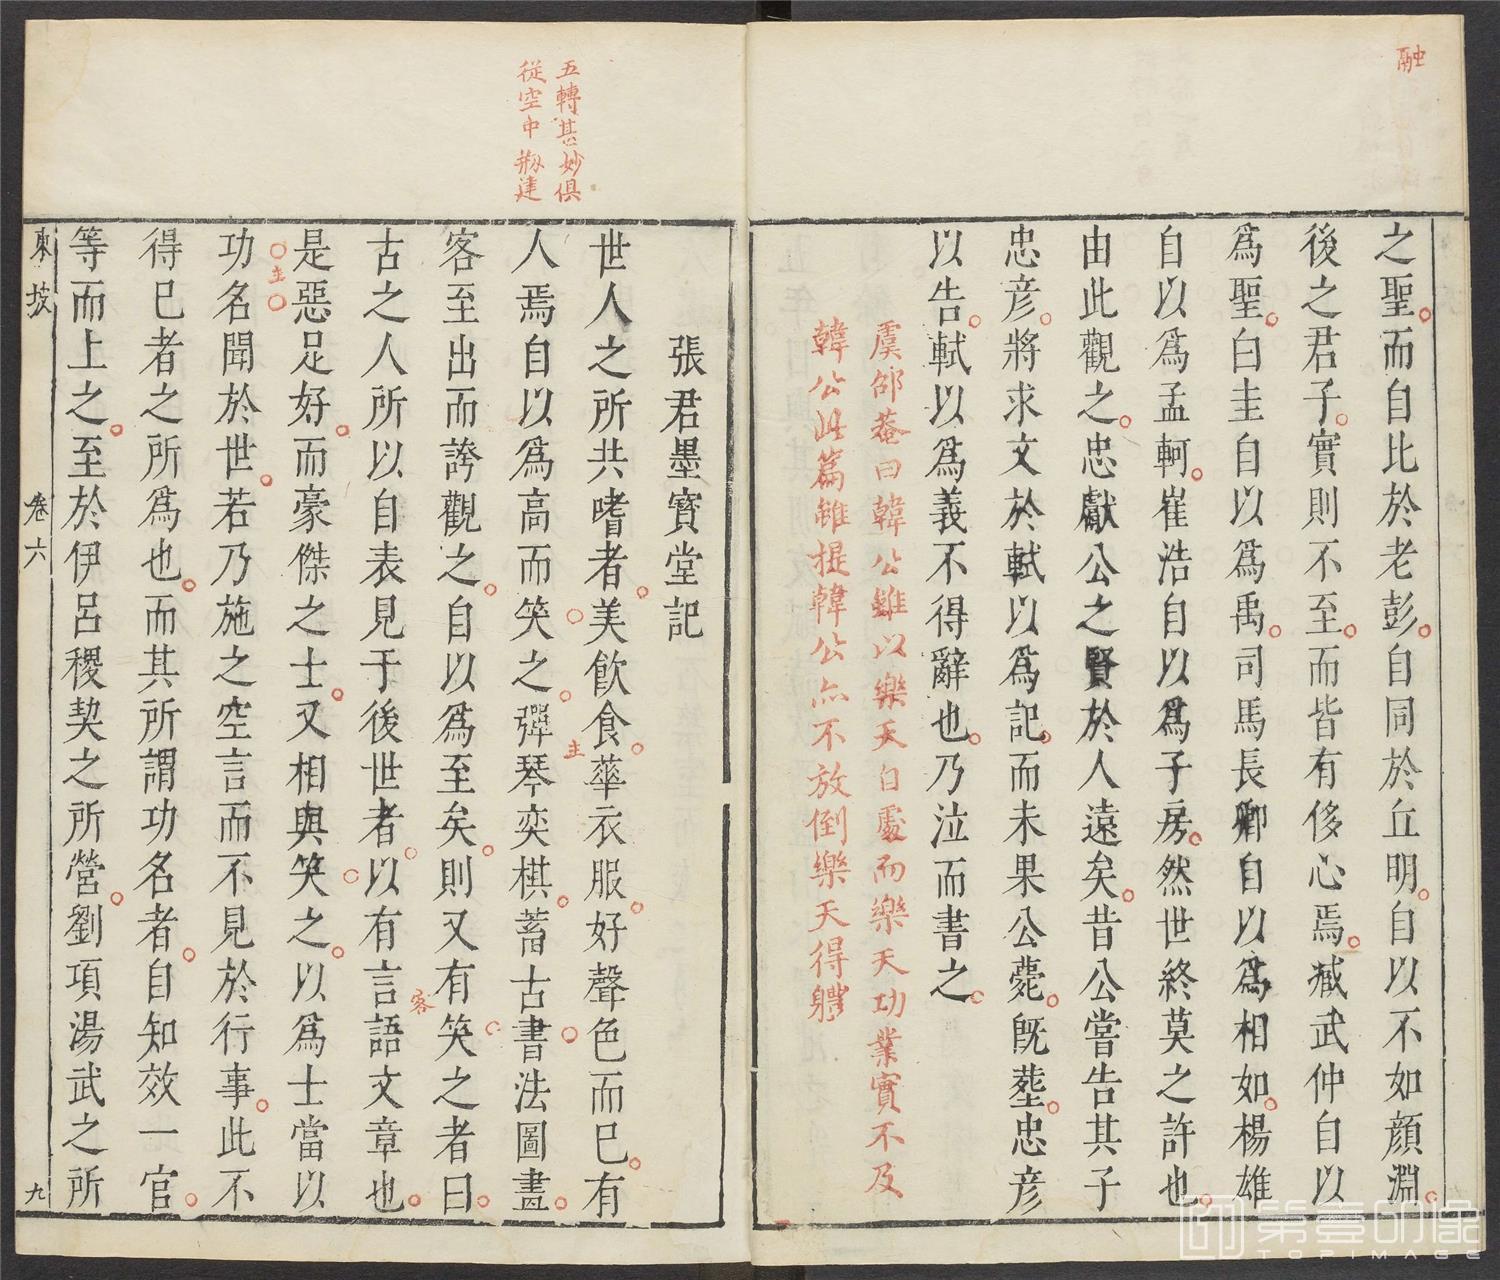 融
之聖。而自比於老彭。自同於丘明。自以不如顔淵。
後之君子。實則不至。而皆有侈心焉。臧武仲自以
爲聖。白圭自以爲禹。司馬長卿自以爲相如。楊雄
自以爲孟軻。崔浩自以爲子房。然世終莫之許也。
由此觀之。忠獻公之賢於人遠矣。昔公嘗告其子
忠彦。將求文於軾以爲記。而未果公薨。旣葬。忠彦
以告。軾以爲義不得辭也。乃泣而書之。
虞邵菴曰韓公雖以樂天自處而樂天功業實不及
韓公此篇雖提韓公亦不放倒樂天得軆
五轉甚妙俱
從空中剏建
張君墨寳堂記
世人之所共嗜者。美飲食。華衣服。好聲色而已。有
人焉自以爲高而笑之。彈琴奕棋。蓄古書法圖畫。
主
客至出而誇觀之。自以爲至矣。則又有笑之者曰。
古之人所以自表見于後世者。以有言語文章也。
客
是惡足好。而豪傑之士。又相與笑之。以爲士當以
主
功名聞於世。若乃施之空言而不見於行事。此不
得已者之所爲也。而其所謂功名者。自知效一官。
等而上之。至於伊呂稷契之所營。劉項湯武之所
東坡 卷六 九
第壹印像
TOPIMAGE